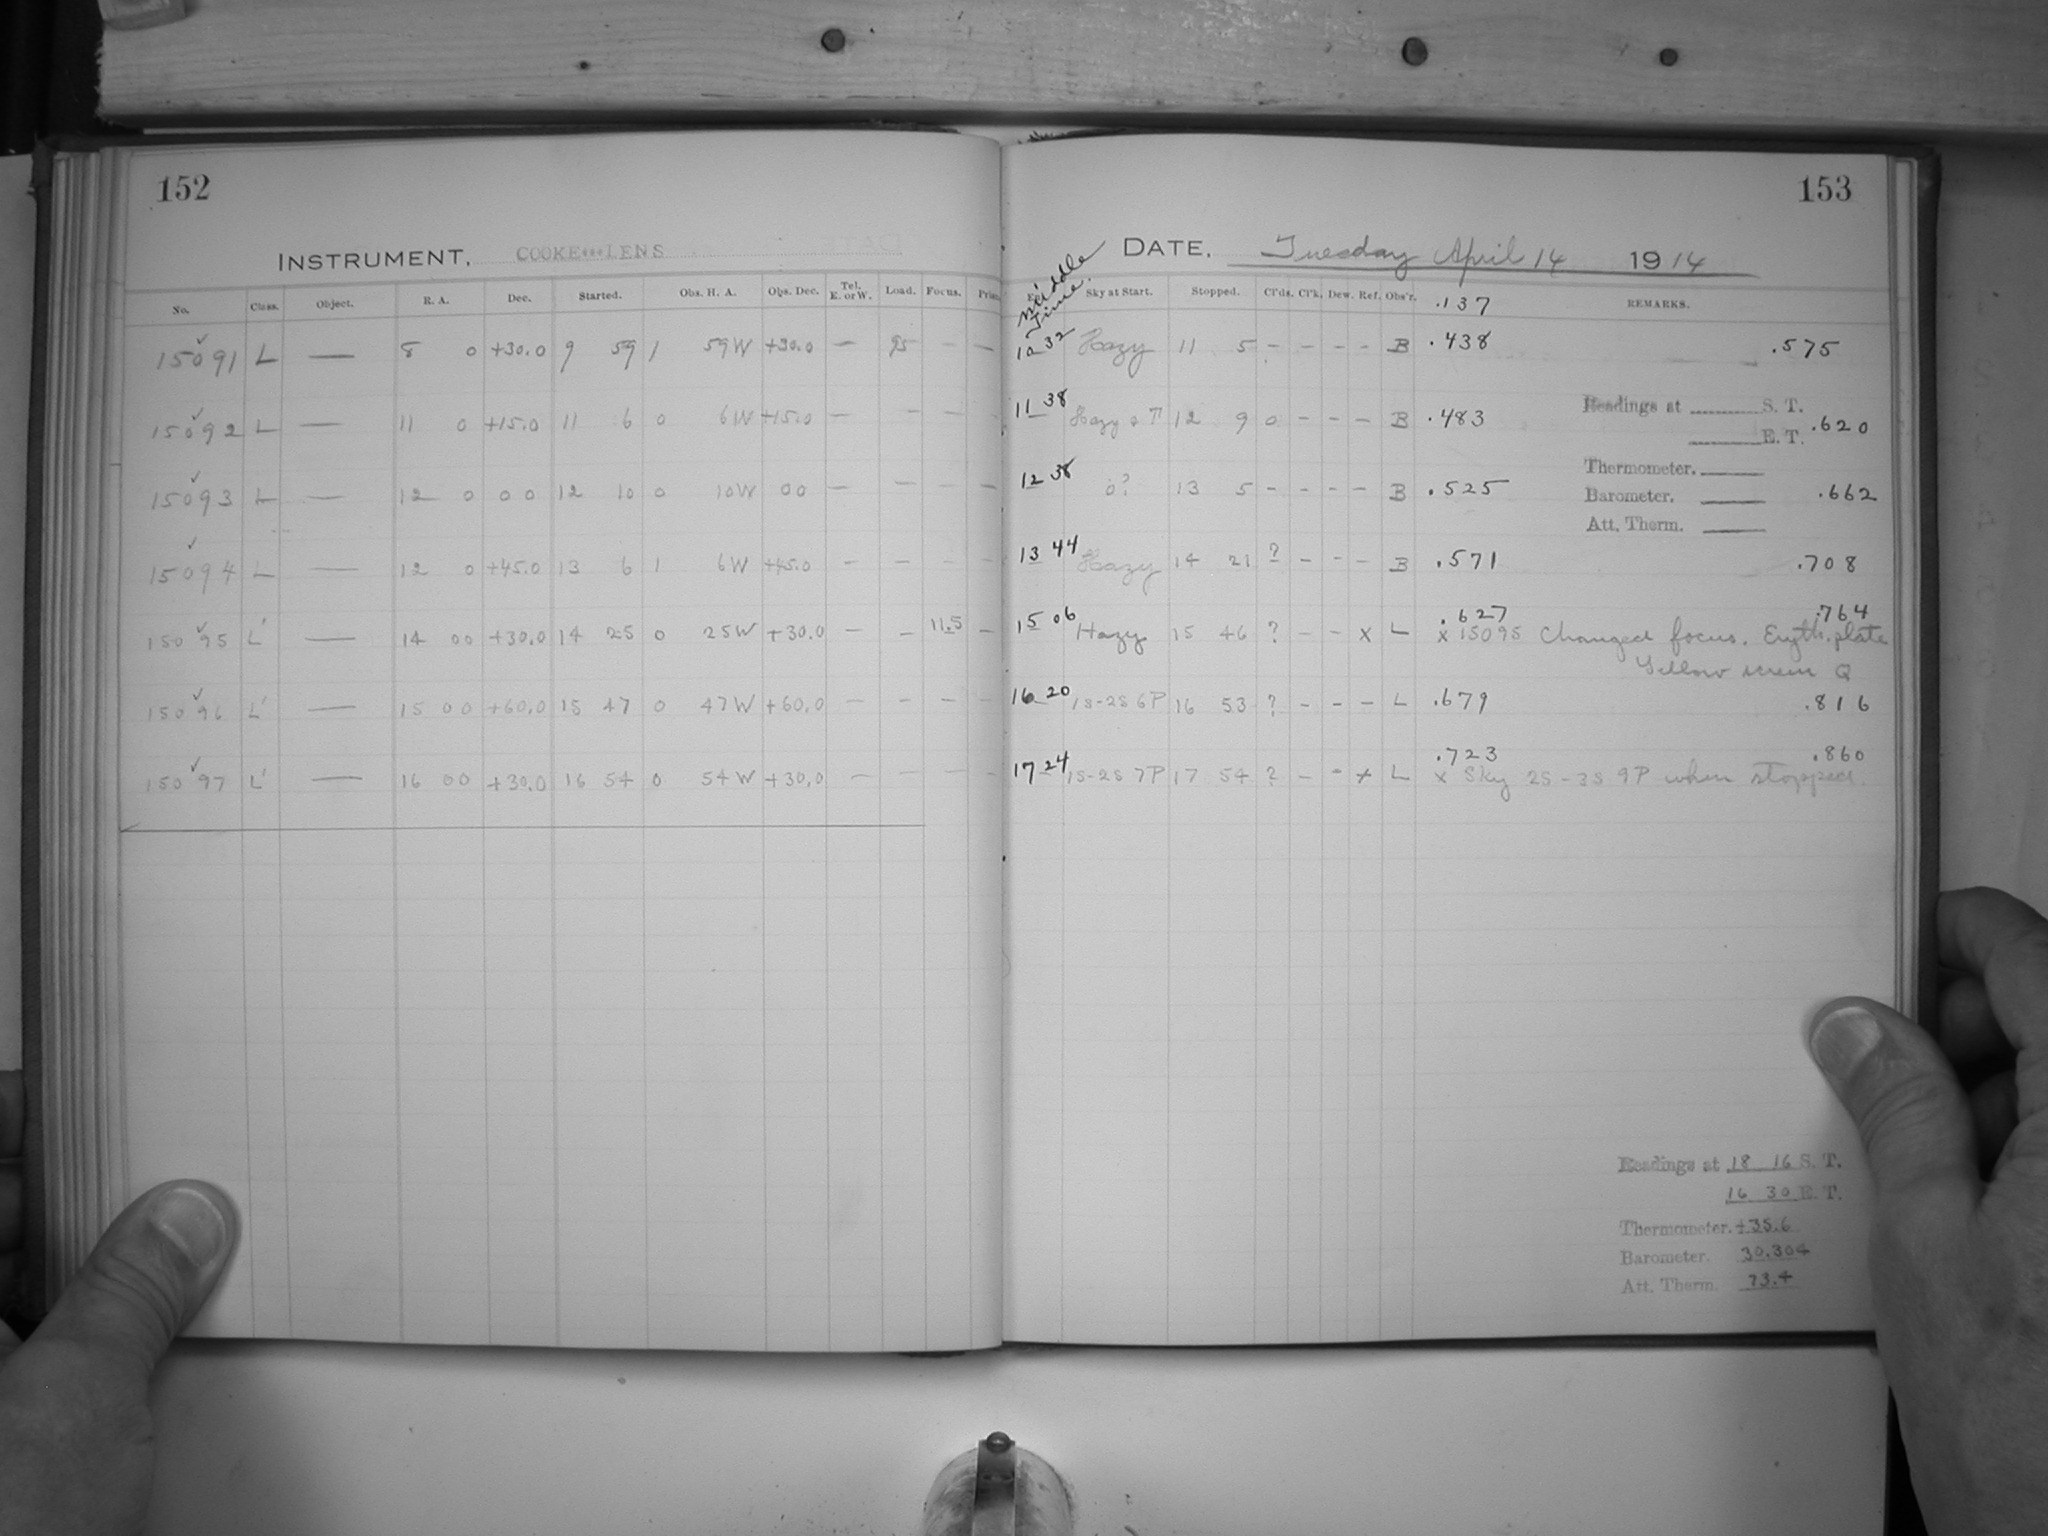 152
INSTRUMENT, COOKE LENS
No. Class. Object. R. A. Dec. Started. Obs. H. A. Obs. Dec. Tel. E. or W. Load. Focus.
15091 L — 8 0 +30.0 9 59 1 59W +30.0 — 95 — —
15092 L — 11 0 +15.0 11 6 0 6W +15.0 — — — —
15093 L — 12 0 0 0 12 10 0 10W 0 0 — — — —
15094 L — 12 0 +45.0 13 6 1 6W +45.0 — — — —
15095 L' — 14 00 +30.0 14 25 0 25W +30.0 — — 11.5 —
15096 L' — 15 00 +60.0 15 47 0 47W +60.0 — — — —
15097 L' — 16 00 +30.0 16 54 0 54W +30.0 — — — —
153
DATE, Tuesday April 14 1914
Middle Time. Sky at Start. Stopped. Cl'ds. Cl'k. Dew. Ref. Obs'r. .137 REMARKS.
10 32 Hazy 11 5 - - - - B .438 .575
11 38 Hazy 12 9 0 - - - B .483 .620
Readings at S. T.
E. T.
12 38 0? 13 5 - - - - B .525 .662
Thermometer.
Barometer.
Att. Therm.
13 44 Hazy 14 21 ? - - - B .571 .708
15 06 Hazy 15 46 ? - - x L .627 .764
x 15095 Changed focus. Eryth. plate
Yellow screen Q
16 20 1S-2S 6P 16 53 ? - - - L .679 .816
17 24 1S-2S 7P 17 54 ? - - x L .723 .860
x Sky 2S-3S 9P when stopped.
Readings at 18 16 S. T.
16 30 E. T.
Thermometer. +35.6
Barometer. 30.304
Att. Therm. 73.4